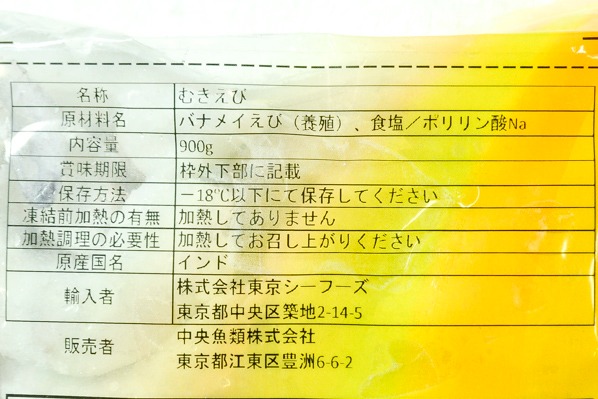 名称 むきえび
原材料名 バナメイえび（養殖）、食塩／ポリリン酸Na
内容量 900g
賞味期限 枠外下部に記載
保存方法 －18℃以下にて保存してください
凍結前加熱の有無 加熱してありません
加熱調理の必要性 加熱してお召し上がりください
原産国名 インド
輸入者 株式会社東京シーフーズ
東京都中央区築地2-14-5
販売者 中央魚類株式会社
東京都江東区豊洲6-6-2